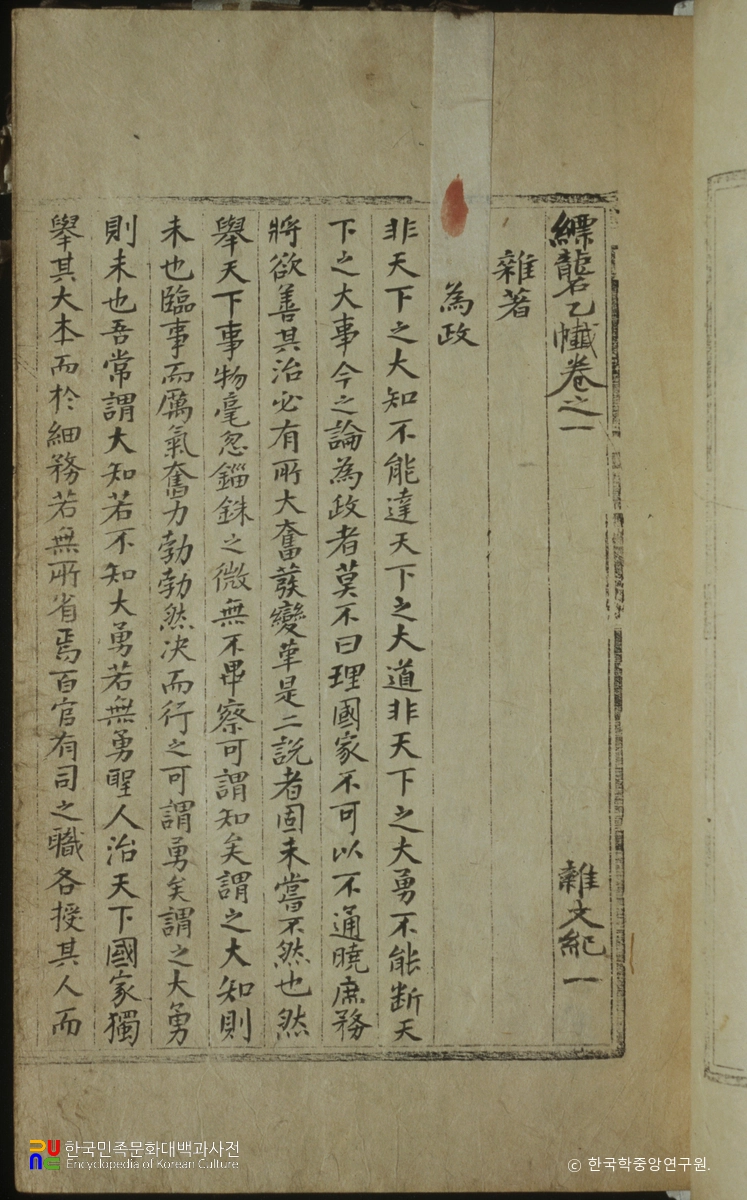 縹礱乙幟卷之一 雜文紀一
雜著
為政
非天下之大知不能達天下之大道非天下之大勇不能断天
下之大事今之論為政者莫不曰理國家不可以不通曉庶務
將欲善其治必有所大奮發變革是二説者固未嘗不然也然
舉天下事物毫忽錙銖之微無不畢察可謂知矣謂之大知則
未也臨事而厲氣奮力勃勃然决而行之可謂勇矣謂之大勇
則未也吾常謂大知若不知大勇若無勇聖人治天下國家獨
舉其大本而於細務若無所省焉百官有司之職各授其人而
한국민족문화대백과사전
Encyclopedia of Korean Culture
© 한국학중앙연구원.